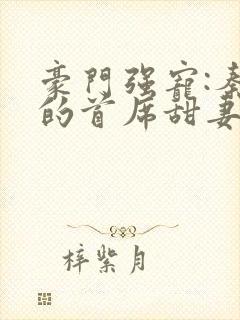 豪門强寵:秦
的首席甜妻
梓紫月